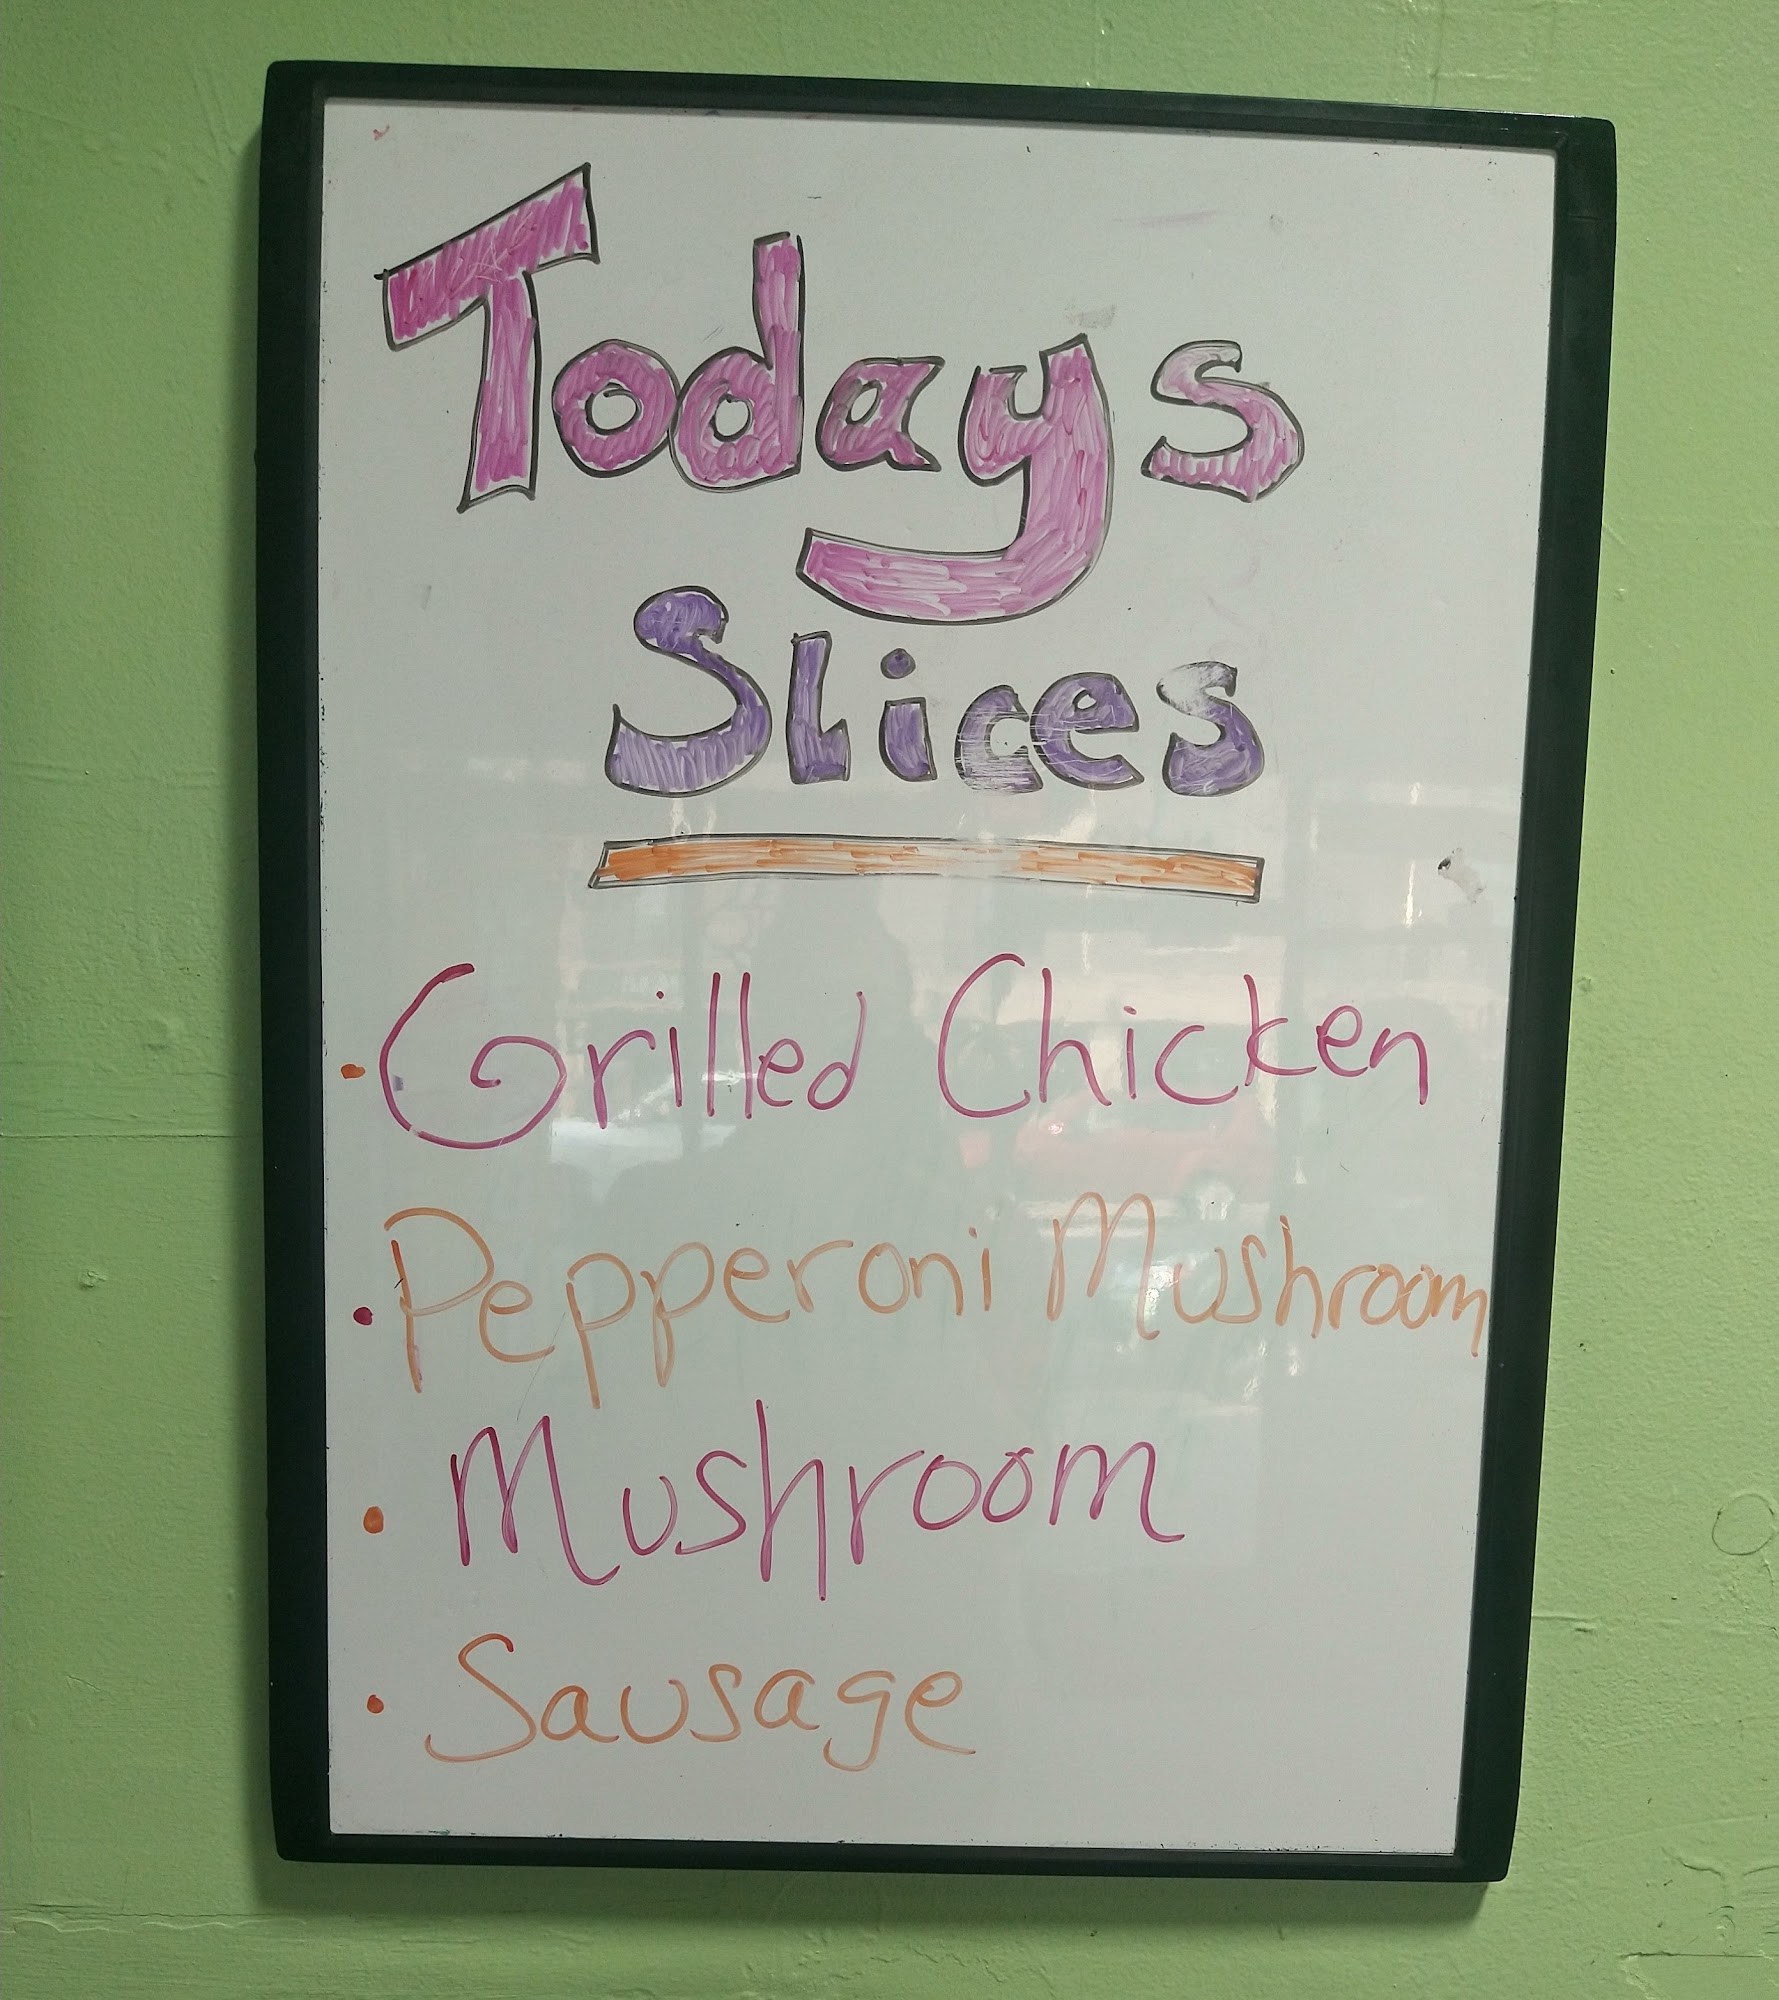 Todays
Slices
• Grilled Chicken
• Pepperoni Mushroom
• Mushroom
• Sausage